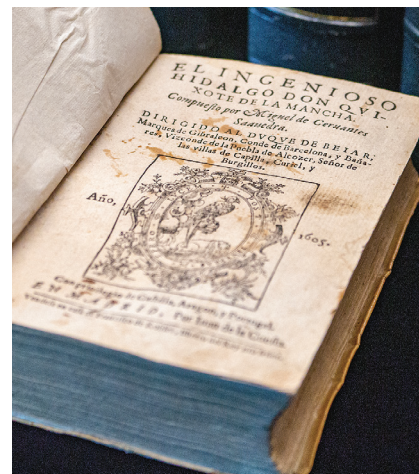 EL INGENIOSO
HIDALGO DON QVI-
XOTE DE LA MANCHA.
Compuesto por Miguel de Ceruantes
Saauedra.
DIRIGIDO AL DVQVE DE BEIAR,
Marques de Gibraleon, Conde de Barcelona, y Baña-
res, Vizconde de la Puebla de Alcozer, Señor de
las villas de Capilla, Curiel, y
Burgillos.
Año, 1605.
de Castilla, Aragon, y Portugal.
EN MADRID, Por Iuan de la Cuesta.